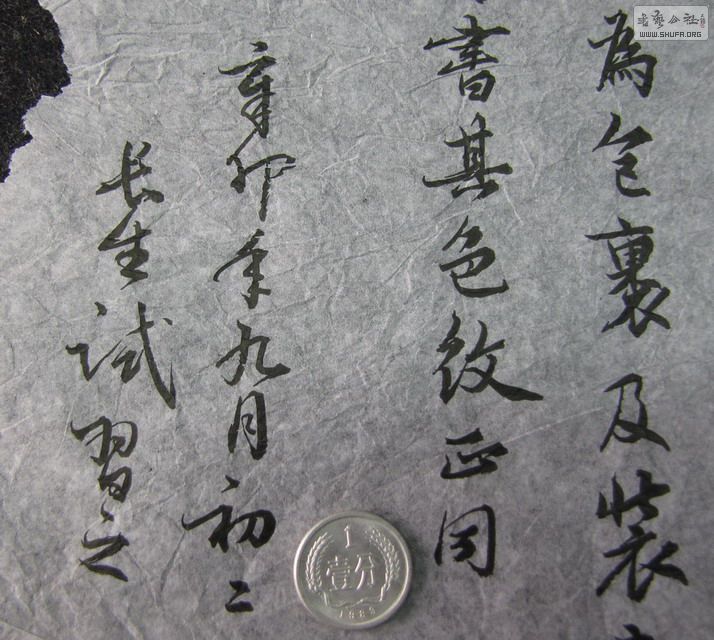 為包裹及裝
書其色紋正同
辛卯年九月初二
長生試習之
1
壹分
1983
書藝公社
WWW.SHUFA.ORG